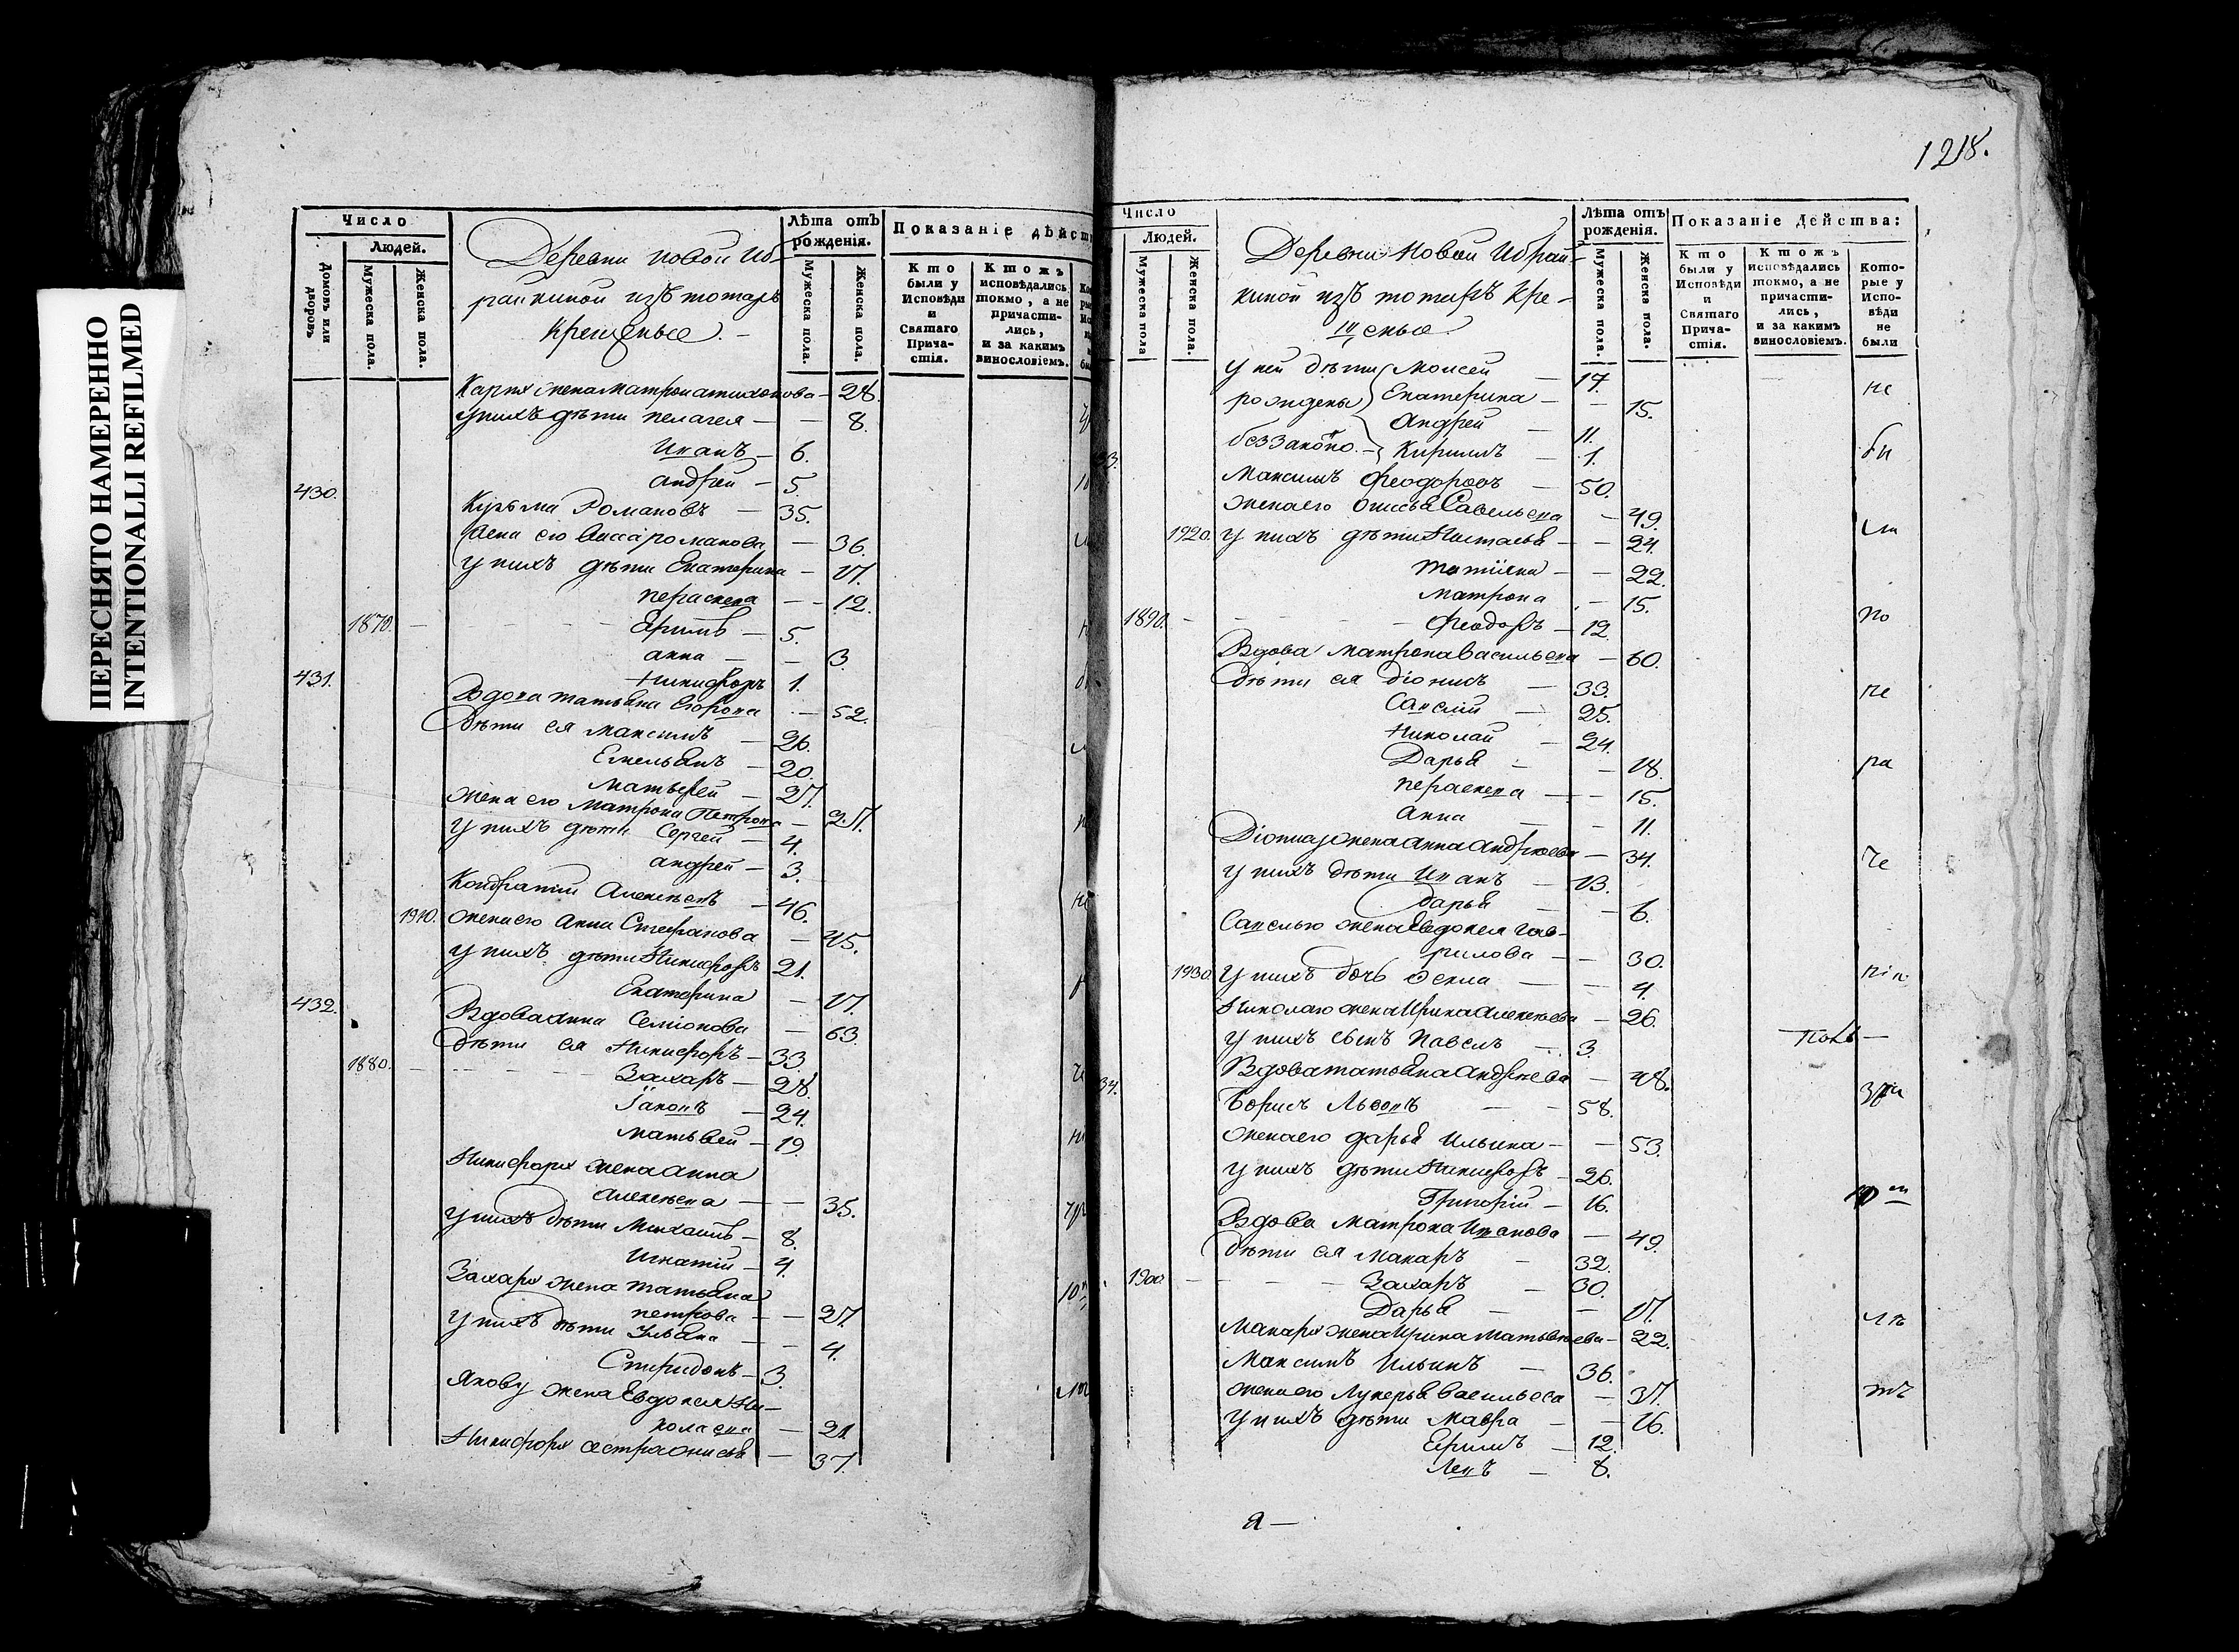 ПЕРЕСНЯТО НАМЕРЕННО
INTENTIONALLI REFILMED
Число
Людей.
Домовъ или дворовъ
Мужеска пола.
Женска пола.
Деревни новой Иб-
райкиной изъ тотаръ
крещеные. -
Лѣта отъ рожденія.
Мужеска пола.
Женска пола.
Показаніе дѣйст
Кто были у Исповѣди и Святаго Прича-стія.
Ктожъ исповѣдались токмо, а не причасти-лись, и за какимъ винословіемъ.
Карпа жена матрона тихонова - 28.
у нихъ дѣти пелагея - - 8.
Иванъ - 6.
андрей - 5.
430.
Кузьма Романовъ - 35.
жена его васса романова - 36.
у нихъ дѣти Екатерина - 17.
параскева - - 12.
1870. - Ефимъ - 5.
анна - - 3.
Никифоръ 1.
431.
Вдова татьяна Егорова - 52.
Дѣти ея максимъ - 26.
Емельянъ - 20.
Матьвей - 27.
жена его матрона Петрова - 27.
у нихъ дѣти Сергей - 4.
андрей - 3.
Кондратій Алексѣевъ - 46.
1910. жена его анна Стефанова - 45.
у нихъ дѣти Никифоръ 21.
Екатерина - 17.
432.
Вдова анна Семіонова - 63.
дѣти ея Никифоръ - 33.
1880. - Захаръ - 28.
Іаковъ - 24.
матьвей - 19.
Никифора жена анна
алексѣева - - 35.
у нихъ дѣти Михаилъ - 8.
Игнатій - 4.
Захара жена татьяна
петрова - - 27.
у нихъ дѣти Ульяна - - 4.
Спиридонъ - 3.
Якову жена Евдокея Ни-
колаева - 21.
Никифора сестра онисья - 37.
1218.
Число
Людей.
Мужеска пола
Женска пола.
Деревни Новой Ибрай-
киной изъ тотаръ кре-
щеные
Лѣта отъ рожденія.
Мужеска пола.
Женска пола.
Показаніе Действа:
Кто были у Исповѣди и Святаго Прича-стія.
Ктожъ исповѣдались токмо, а не причасти-лись, и за какимъ винословіемъ.
Кото-рые у Испо-вѣди не были
у ней дѣти Моисей - 17. не
рождены Екатерина - - 15.
Андрей - 11.
беззаконо. - Кирилъ - 1. бы
33.
Максимъ Феодоровъ - 50.
жена его онисья Савельева - 49. ли
1920. у нихъ дѣти Настасья - - 24.
татіяна - - 22.
матрона - 15.
1890. - Феодоръ - 12. по
Вдова матрона васильева - 60.
дѣти ея діонисъ - 33. не
Савелій - 25.
Николай - 24.
Дарья - - 18. ра
параскева - - 15.
Анна - - 11.
Діониза жена анна андреева - 34.
у нихъ дѣти Иванъ - 13. че
дарья - - 6.
Савелью жена Евдокея гав-
рилова - - 30.
1930. у нихъ дочь Фекла - - 4.
Николаю жена Ирина алексѣева - 26.
у нихъ сынъ павелъ - 3.
Вдова татьяна андреева - 48.
34.
Борисъ Львовъ - - 58.
жена его дарья ильина - - 53.
у нихъ дѣти Никифоръ - 26.
Григорій - 16.
Вдова матрона Иванова - 49.
дѣти ея Макаръ - 32.
1900 - Захаръ - 30.
Дарья - - 17.
Макара жена Ирина матьвѣева - 22. лѣ
Максимъ Ильинъ - 36.
жена его лукерья васильева - 37. тъ
у нихъ дѣти мавра - - 16.
Ефимъ - 12.
Левъ - 8.